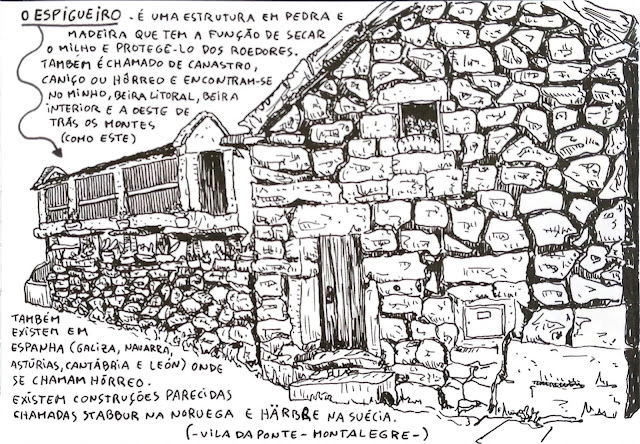 O ESPIGUEIRO - É UMA ESTRUTURA EM PEDRA E
MADEIRA QUE TEM A FUNÇÃO DE SECAR
O MILHO E PROTEGÊ-LO DOS ROEDORES.
TAMBÉM É CHAMADO DE CANASTRO,
CANIÇO OU HÓRREO E ENCONTRAM-SE
NO MINHO, BEIRA LITORAL, BEIRA
INTERIOR E A OESTE DE
TRÁS OS MONTES
(COMO ESTE)
TAMBÉM
EXISTEM EM
ESPANHA (GALIZA, NAVARRA,
ASTÚRIAS, CANTÁBRIA E LEÓN) ONDE
SE CHAMAM HÓRREO.
EXISTEM CONSTRUÇÕES PARECIDAS
CHAMADAS STABBUR NA NORUEGA E HÄRBRE NA SUÉCIA.
(-VILA DA PONTE - MONTALEGRE-)